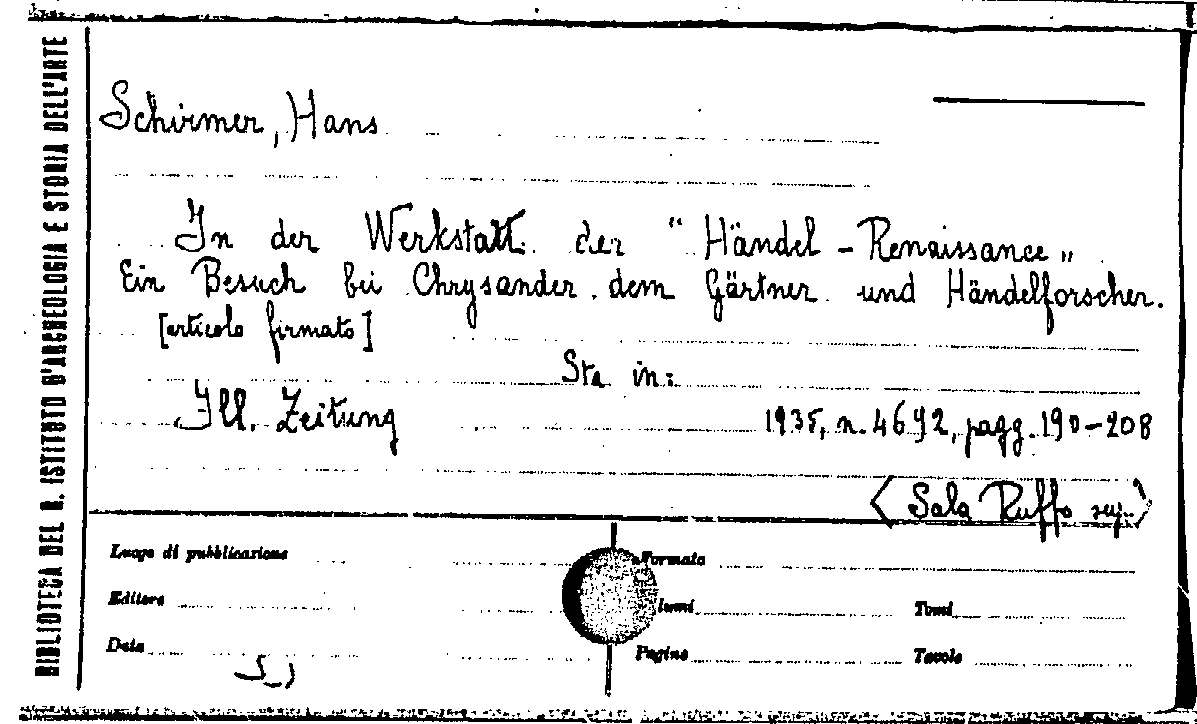 BIBLIOTECA DEL R. ISTITUTO D'ARCHEOLOGIA E STORIA DELL'ARTE
Schirmer, Hans
In der Werkstatt der "Händel - Renaissance"
Ein Besuch bei Chrysander dem Gärtner und Händelforscher.
[articolo firmato]
Sta in:
Ill. Zeitung
1935, n. 4692, pagg. 190-208
Sala Ruffo
Luogo di pubblicazione
Formato
Editore
lumi
Tomi
Data
Pagine
Tavole